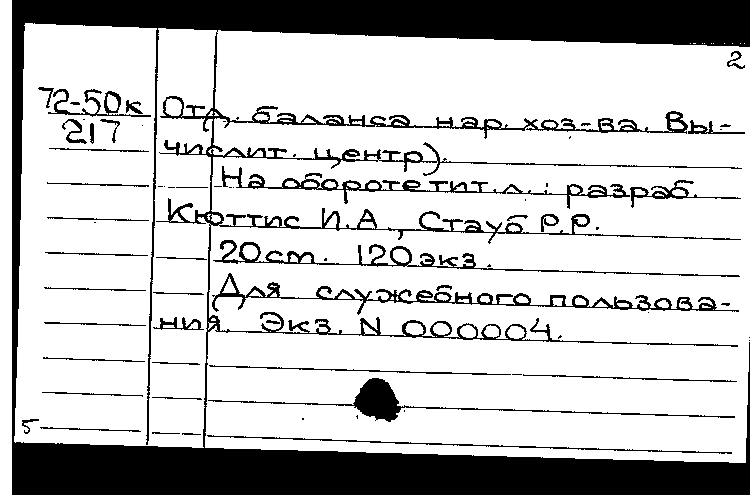 2
72-50к
217
Отд. баланса нар. хоз-ва. Вы-
числит. центр).
На обороте тит. л.: разраб.
Кюттис И.А., Стауб Р.Р.
20 ст. 120 экз.
Для служебного пользова-
ния. Экз. N 000004.
5